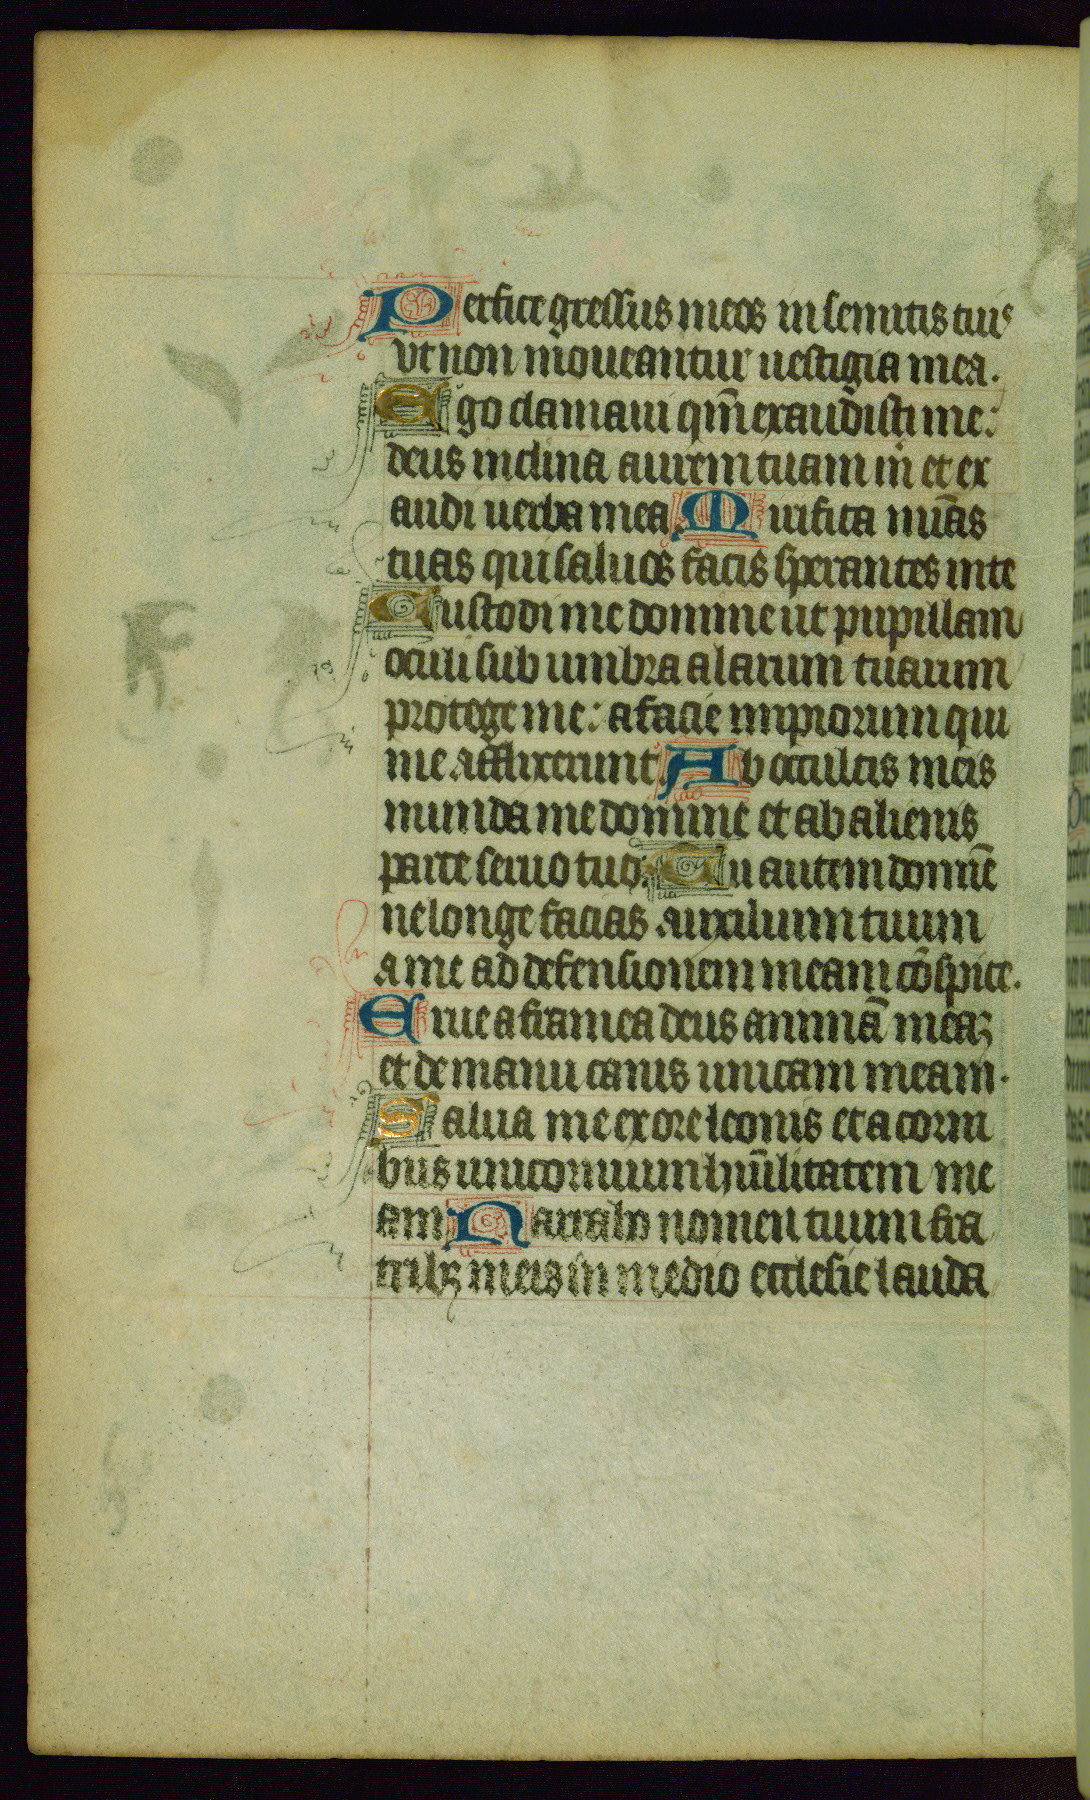 Perfice gressus meos in semitis tuis
vt non moueantur uestigia mea.
Ego clamaui qm̄ exaudisti me:
deus inclina aurem tuam m̄ et ex
audi uerba mea. Mirifica mīas
tuas qui saluos facis sperantes in te
Custodi me domine ut pupillam
oculi sub umbra alarum tuarum
protege me: a facie impiorum qui
me afflixerunt. Ab occultis meis
munda me domine et ab alienis
parce seruo tuo: Tu autem domīe
ne longe facias auxilium tuum
a me ad defensionem meam cōspice.
Erue a framea deus animā meaꝫ
et de manu canis unicam meam.
Salua me ex ore leonis et a corni
bus unicornium hūilitatem me
am Narrabo nomen tuum fra
tribꝫ meis in medio ecclesie lauda